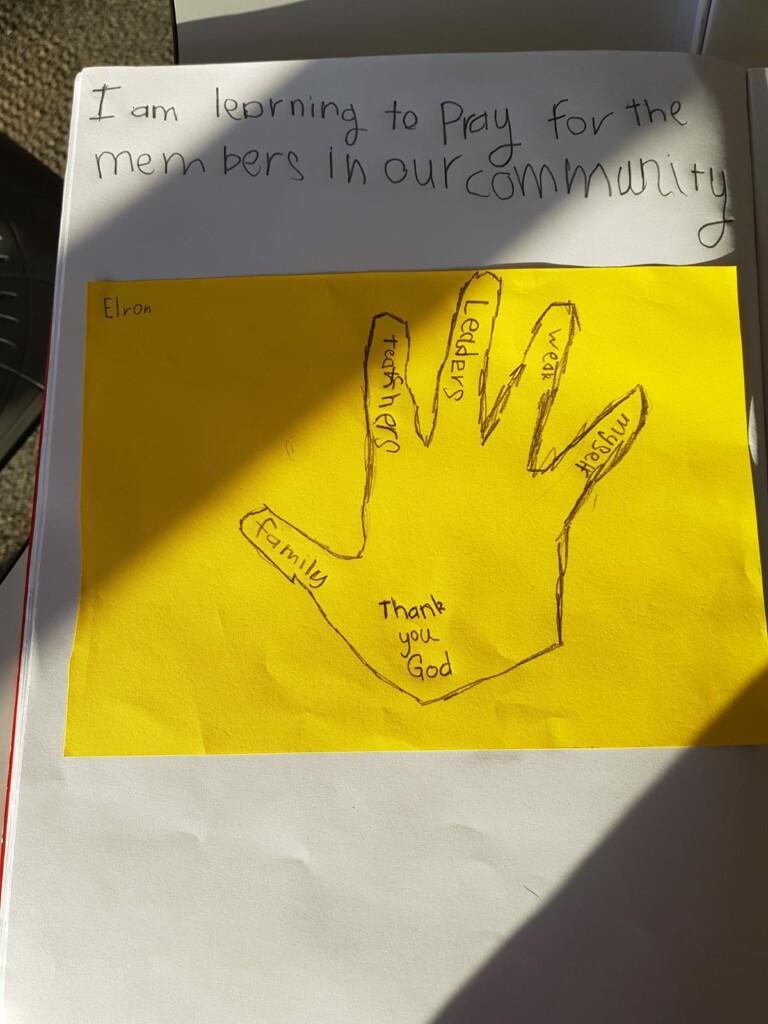 I am learning to Pray for the
members in our community
Elron
teachers
Leaders
weak
myself
family
Thank
you
God